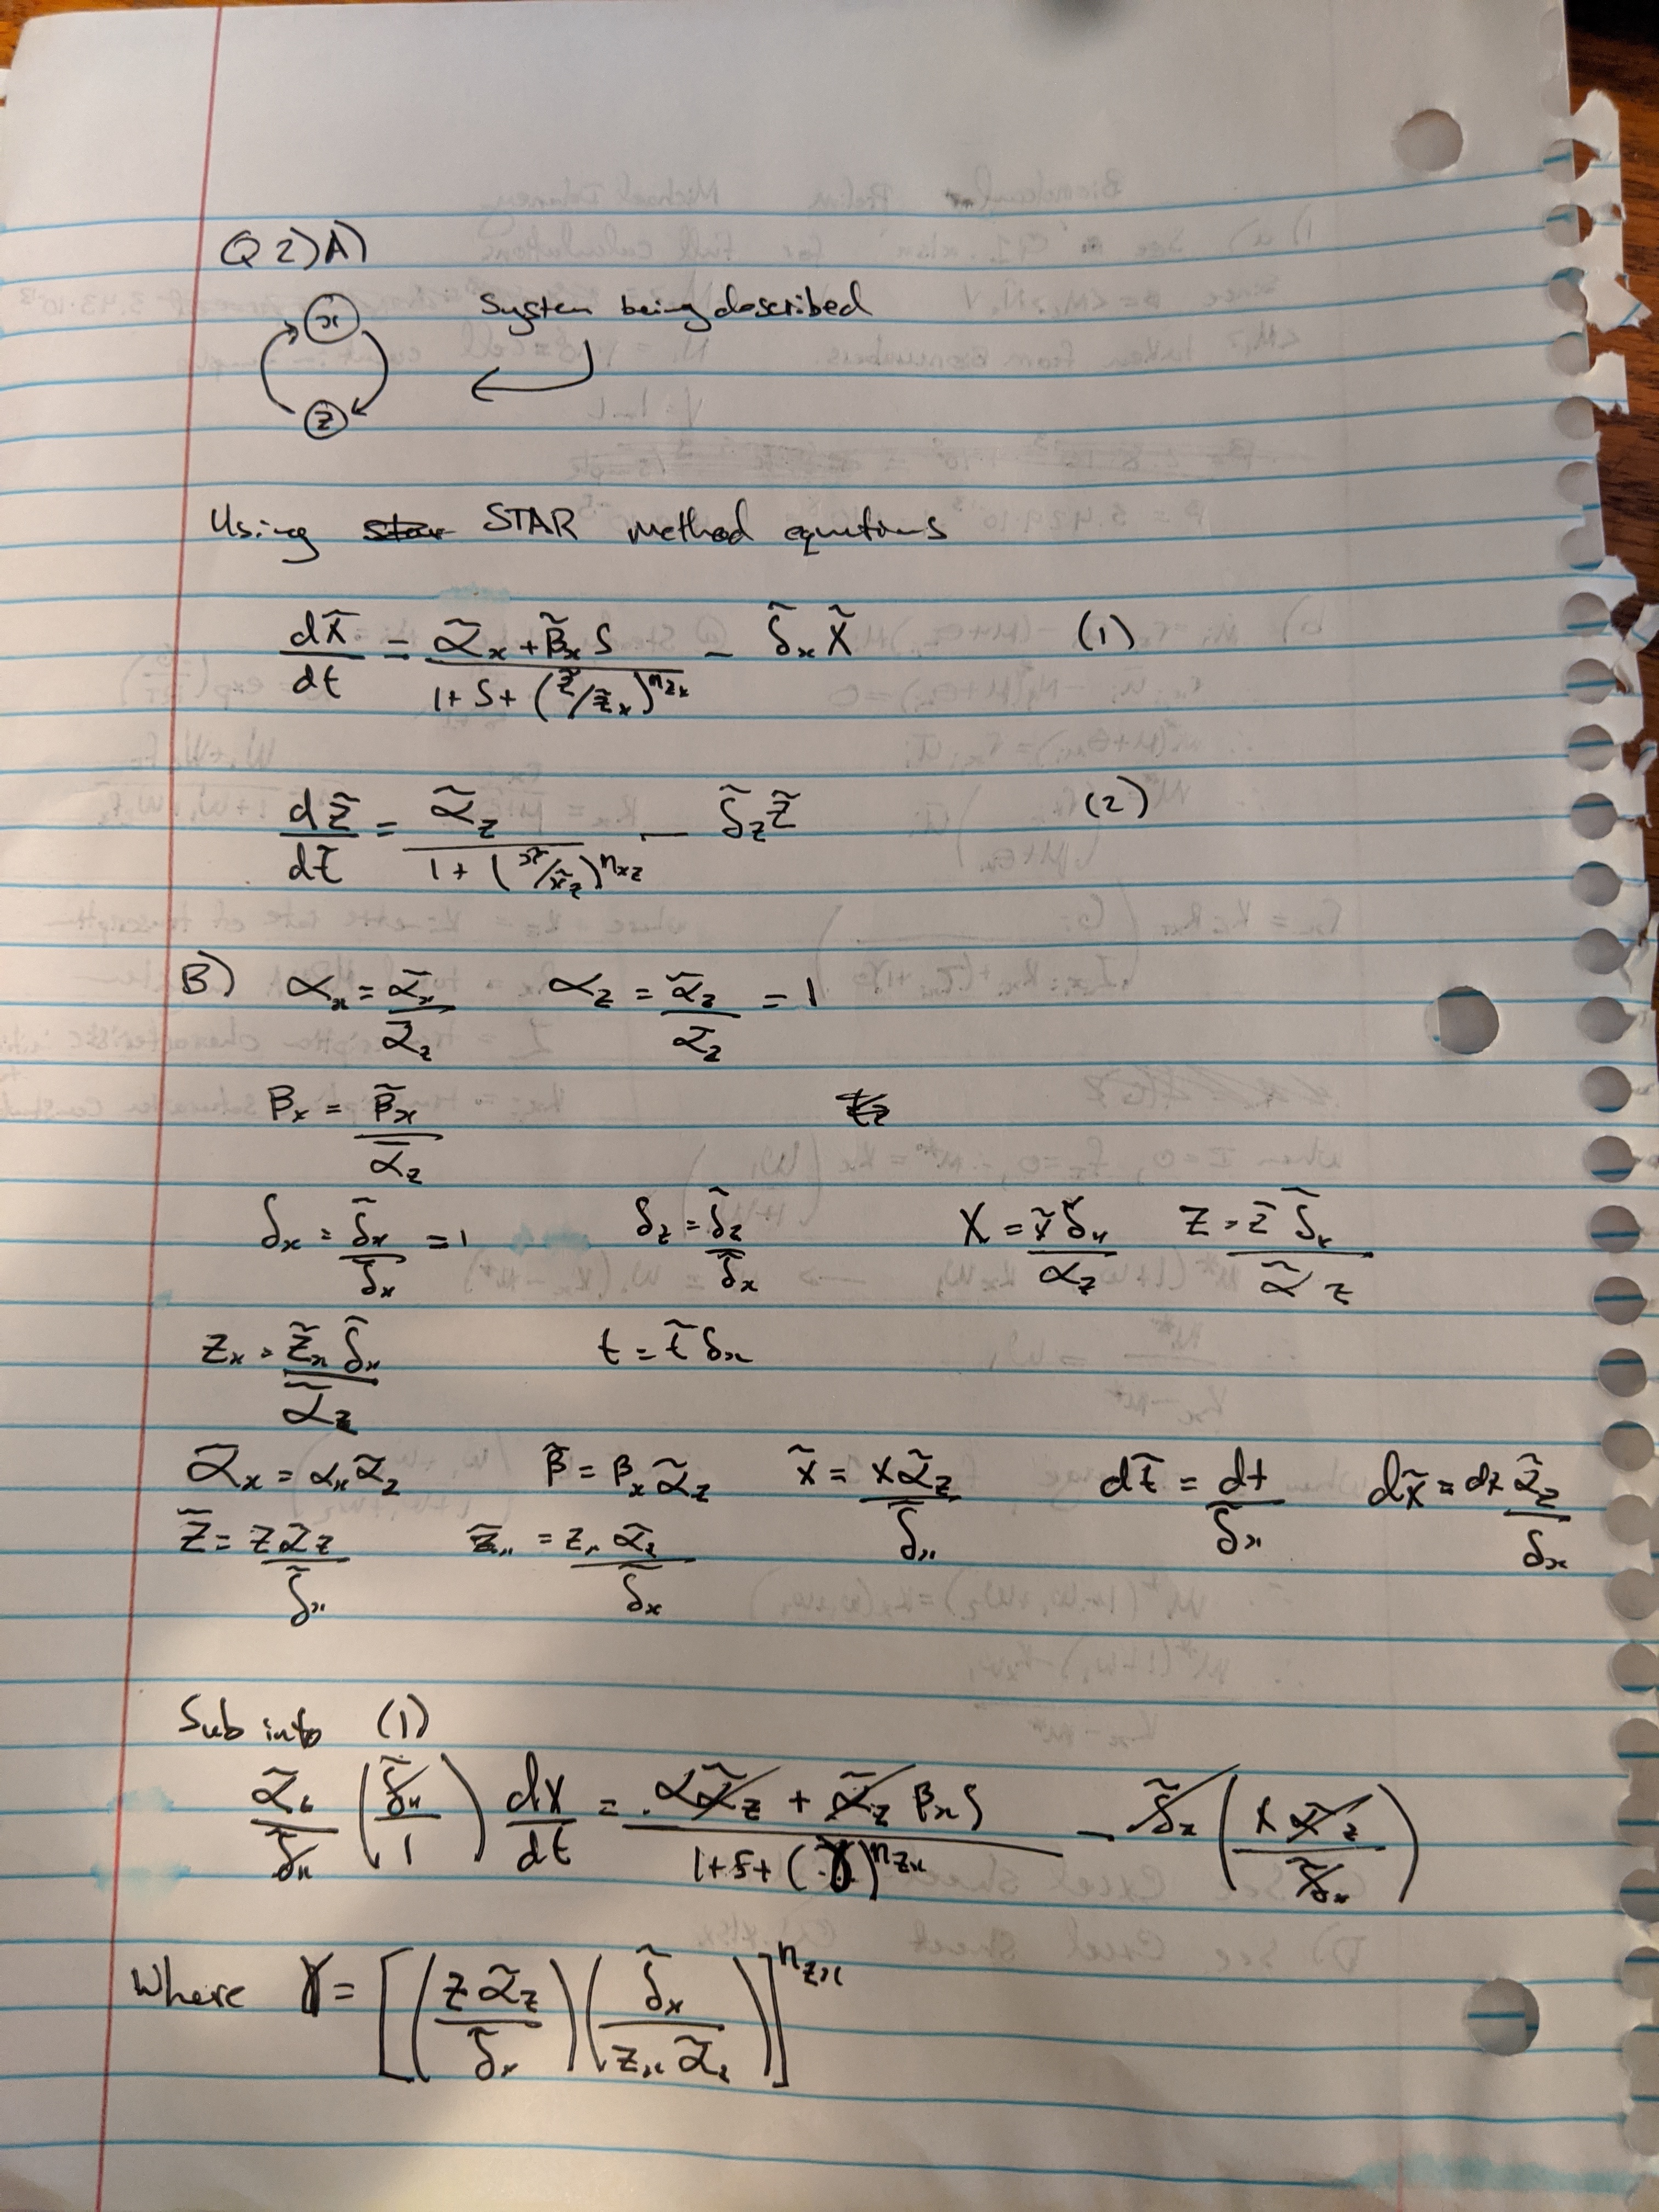 Q 2) A)
x
System being described
z
Using STAR method equations
dx̃/dt = (α̃ₓ + β̃ₓ S)/(1 + S + (z̃/z̃ₓ)^(n_zx)) − δ̃ₓ x̃ (1)
dz̃/dt̃ = α̃_z/(1 + (x̃/x̃_z)^(n_xz)) − δ̃_z z̃ (2)
B) αₓ = α̃ₓ/α̃_z α_z = α̃_z/α̃_z = 1
βₓ = β̃ₓ/α̃_z
δₓ = δ̃ₓ/δ̃ₓ = 1 δ_z = δ̃_z/δ̃ₓ X = x̃ δ̃ₓ/α_z Z = z̃ δ̃ₓ/α̃_z
zₓ = z̃ₓ δ̃ₓ/α̃_z t = t̃ δₓ
α̃ₓ = αₓ α̃_z β̃ = βₓ α̃_z x̃ = x α̃_z/δ̃ₓ dt̃ = dt/δ̃ₓ dx̃ = dx α̃_z/δₓ
z̃ = z α̃_z/δ̃ₓ z̃ₓ = zₓ α̃_z/δ̃ₓ
Sub into (1)
α̃_z/δ̃ₓ (δ̃ₓ/1) dx/dt = (α α̃_z + α̃_z βₓ S)/(1 + S + (γ)^(n_zx)) − δ̃ₓ (x α̃_z/δ̃ₓ)
Where γ = [(z α̃_z/δ̃ₓ)(δ̃ₓ/(zₓ α̃_z))]^(n_zx)